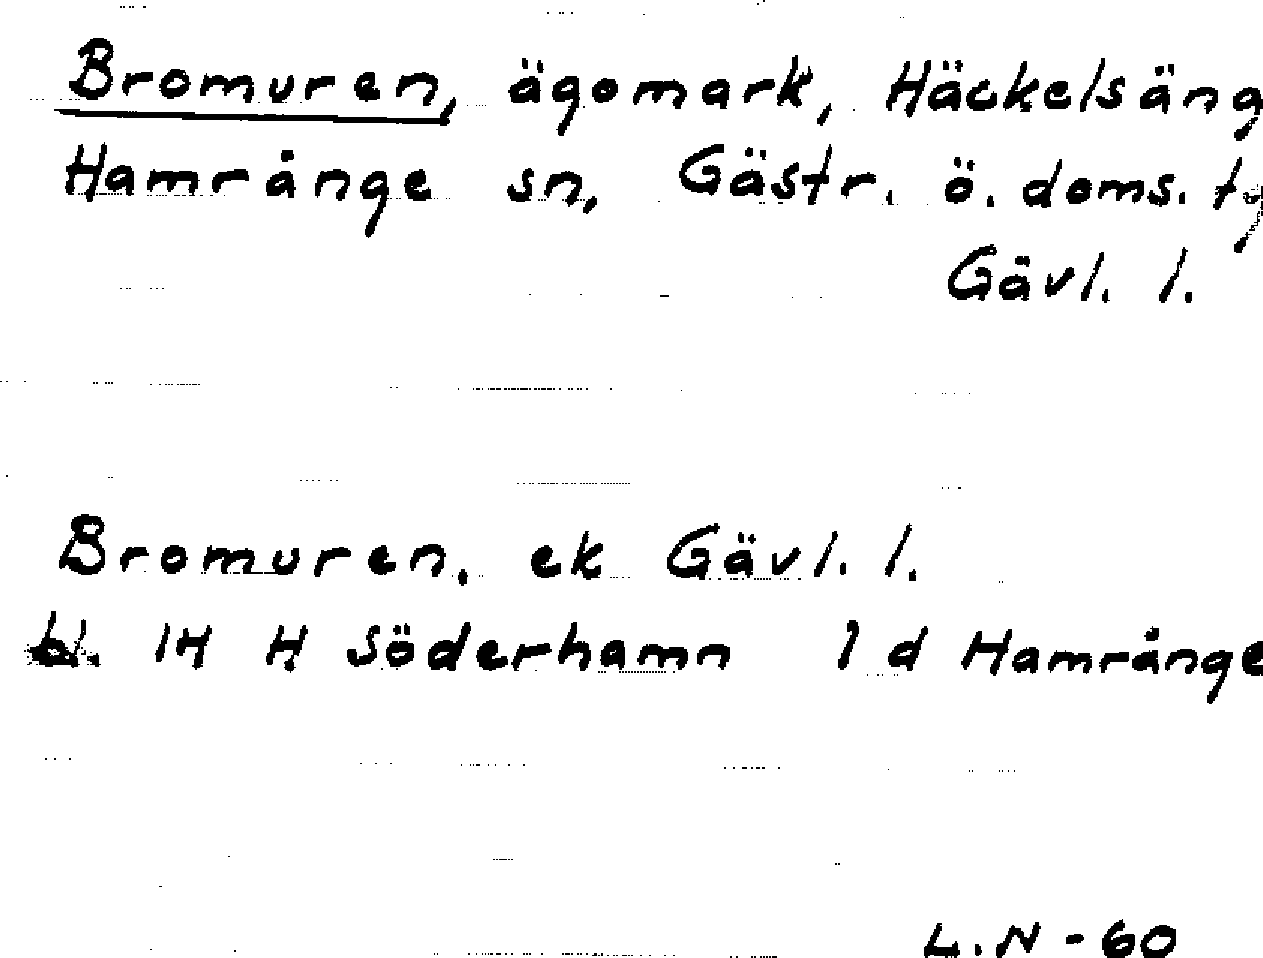 Bromuren, ägomark, Häckelsäng
Hamrånge sn, Gästr. ö. doms. tg
Gävl. l.
Bromuren. ek Gävl. l.
bl. 14 H Söderhamn 1 d Hamrånge
L.N - 60